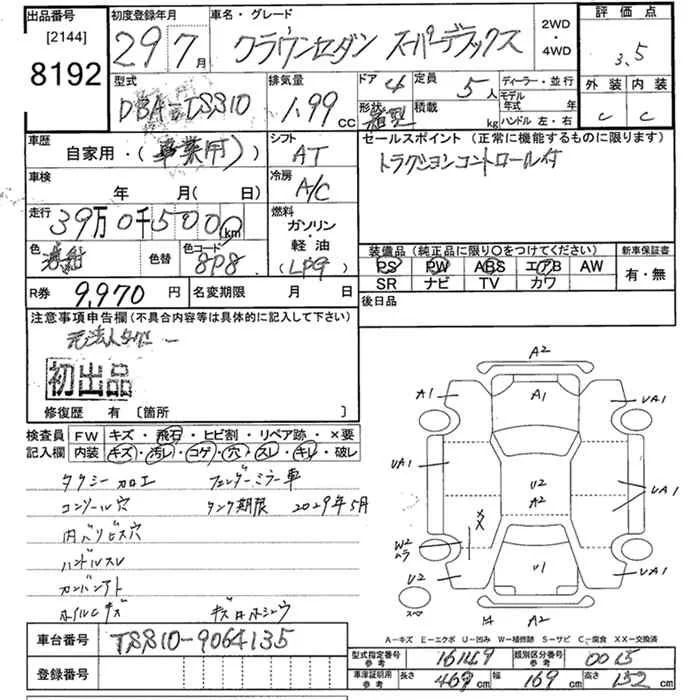 出品番号
[2144]
8192
初度登録年月
29年7月
車名・グレード
クラウンセダン スーパーデラックス
2WD
・
4WD
評価点
3.5
外装 内装
C C
型式
DBA-TSS10
排気量
1.99 cc
ドア 4
定員 5人
形状 箱型
積載 kg
ディーラー・並行
モデル
年式 年
ハンドル 左・右
車歴
自家用・(事業用)
シフト
AT
セールスポイント (正常に機能するものに限ります)
トラクションコントロール付
車検
年 月(日)
冷房
A/C
走行
39万0千500km
燃料
ガソリン
・
軽油
(LPG)
色
色替
色コード
8P8
装備品 (純正品に限り○をつけてください)
新車保証書
PS PW ABS エアB AW
SR ナビ TV カワ
有・無
R券 9,970円
名変期限 月 日
後日品
注意事項申告欄(不具合内容等は具体的に記入して下さい)
元法人タクシー
初出品
修復歴 有 [箇所 ]
検査員
記入欄
FW キズ・飛石・ヒビ割・リペア跡・×要
内装 キズ・汚レ・コゲ・穴・スレ・キレ・破レ
タクシー加工 フェンダーミラー車
コンソール穴 タンク期限 2029年5月
内バリビス穴
ハンドルスレ
カンバンアト
ホイルキズ
A2
A1 A1 UA1
UA1 U2
A2 UA1
XX
W2
ムラ
U2 U1 UA1
スペア
A2
A-キズ E-エクボ U-凹み W-補修跡 S-サビ C-腐食 XX-交換済
車台番号 TSS10-9064135
登録番号
型式指定番号
参考 16149
類別区分番号
参考 0015
車庫証明
参考
長さ 469cm 幅 169cm 高さ 152cm